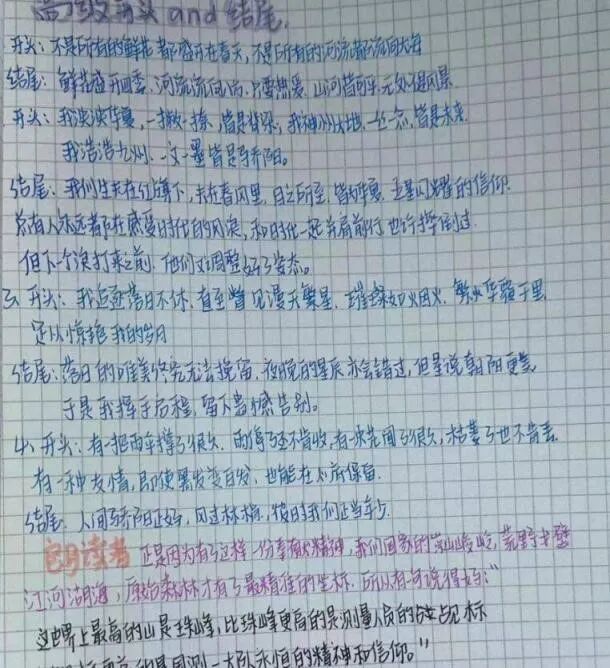 高级开头and结尾.
开头：不是所有的鲜花都盛开在春天，不是所有的河流都流向大海
结尾：鲜花盛开四季，河流流向尚，只要热爱，山河皆可平，无处不是风景
开头：我泱泱华夏，一撇一捺，皆是脊梁，我神州大地，一念，皆是未来
我浩浩九州，一文一墨皆是骄阳。
结尾：我们生来在红旗下，未在春风里，目之所至，皆华夏，五星闪耀的信仰
总有人永远都在感受时代的风浪，和时代一起并肩前行也许摔倒过
但下一个浪打来之前，他们又调整好了姿态。
三 开头：我追逐落日不休，直至瞥见漫天繁星，璀璨如火团火，繁华疆千里
足以惊艳我的岁月
结尾：落日的唯美终究无法挽留，夜晚的星辰亦会错过，但是说朝阳更
于是我挥手启程，留下遗憾告别。
4、开头：有一把雨伞撑了很久，雨停了还不肯收，有一束花闻了很久，枯萎了也不肯丢
有一种友情，即使黑发变白发，也能在心底保留
结尾：人间骄阳正好，风过林梢，彼时我们正当年少
朗读者 正是因为有了这样一份奉献精神，我们国家的崇山峻岭，荒野戈壁
江河湖海，原始森林才有了最精准的坐标，所以有一句说得好："
这世界上最高的山是珠峰，比珠峰更高的是测量员的占觇标
是国测一大队永恒的精神和信仰。"